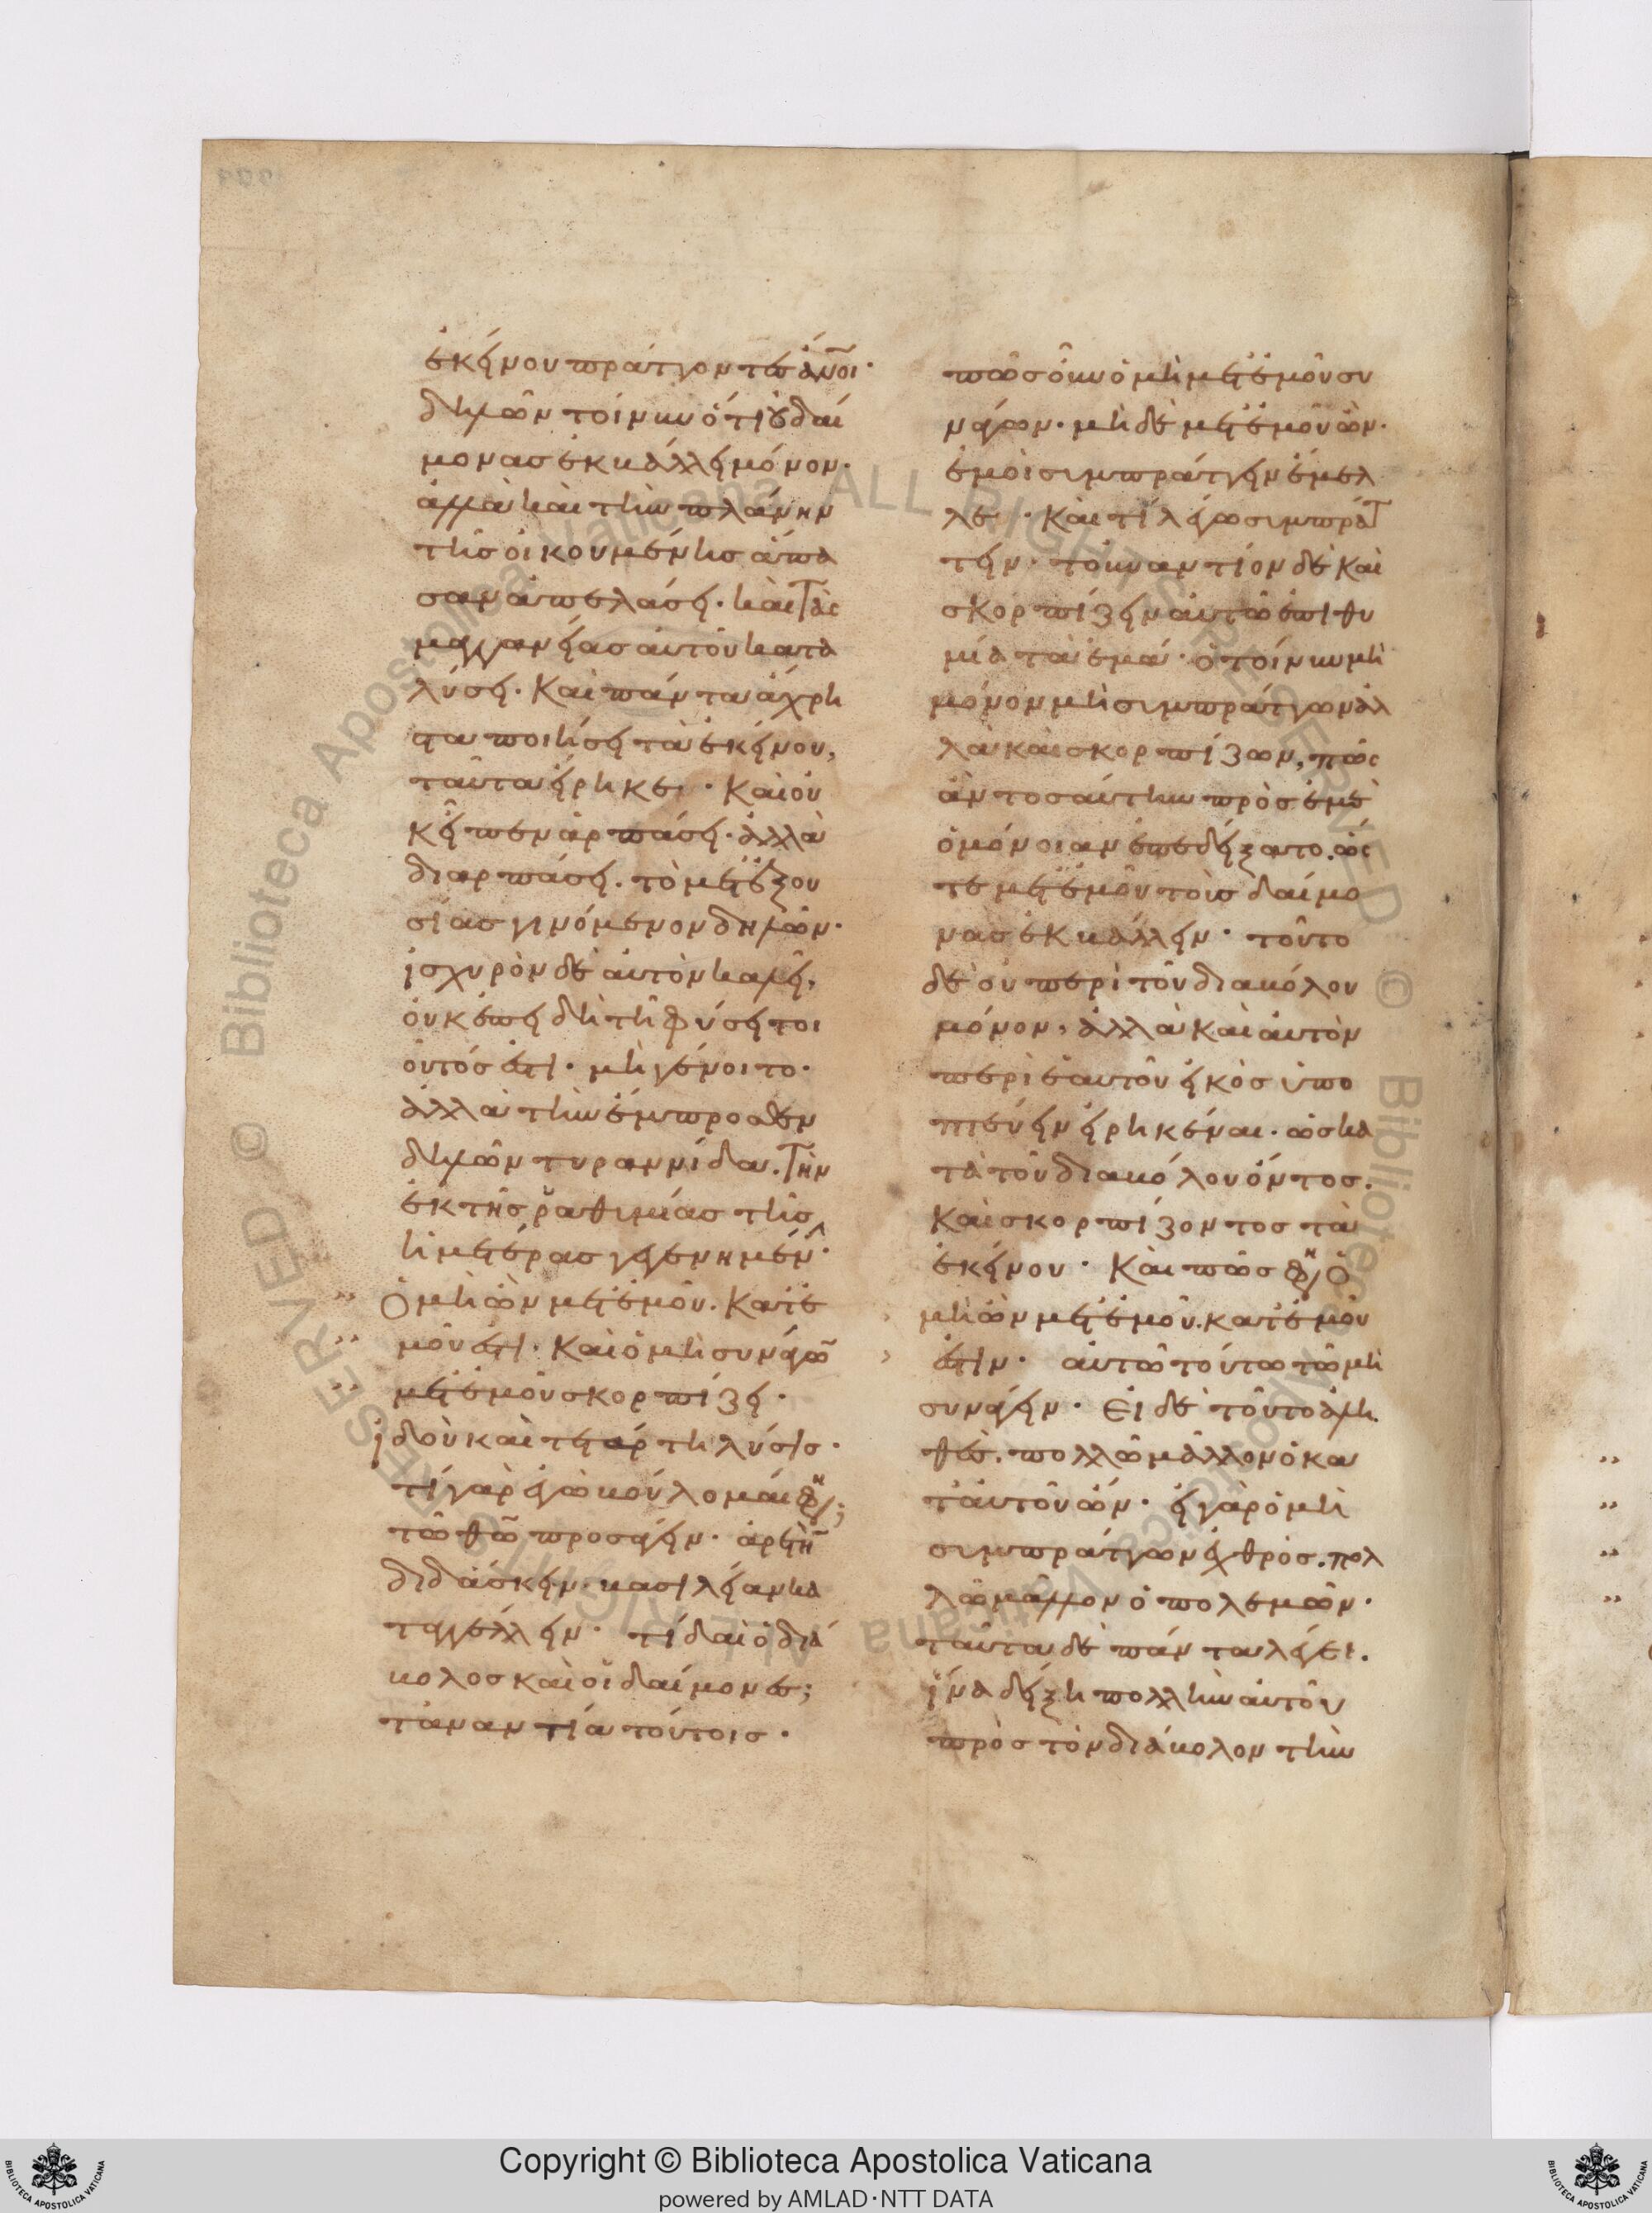 ἐκείνου πράττοντες ἄνοι·
δηλῶν τοίνυν ὅτι οὐ δαί
μονας ἐκβάλλει μόνον·
ἀλλὰ καὶ τὴν πλάνην
τῆς οἰκουμένης ἅπα
σαν ἀπελάσει· καὶ τὰς
μαγγανείας αὐτοῦ κατα
λύσει· καὶ πάντα ἄχρη
στα ποιήσει τὰ ἐκείνου,
ταῦτα εἴρηκε· Καὶ οὐ
κ εἶπεν ἁρπάσει· ἀλλὰ
διαρπάσει. τὸ μετ ἐξου
σίας γινόμενον δηλῶν·
ἰσχυρὸν δὲ αὐτὸν καλεῖ,
οὐκ ἐπειδὴ τῆ φύσει τοι
οῦτός ἐστι· μὴ γένοιτο·
ἀλλὰ τὴν ἔμπροσθεν
δηλῶν τυραννίδα. τὴν
ἐκ τῆς ῥαθυμίας τῆς
ἡμετέρας γεγενημέν·
Ὁ μὴ ὢν μετ ἐμοῦ. κατ ἐ
μοῦ ἐστι· Καὶ ὁ μὴ συνάγω
μετ ἐμοῦ σκορπίζει·
ἰδοὺ καὶ τετάρτη λύσις·
τί γὰρ ἐγὼ βούλομαι φη;
τῶ θῶ προσάγειν· ἀρετὴ
διδάσκειν. βασιλείαν κα
ταγγέλλειν· τί δαὶ ὁ διά
βολος καὶ οἱ δαίμονες;
τἀναντία τούτοις·
πῶς οὖν ὁ μὴ μετ ἐμοῦ συ
νάγων· μὴ δὲ μετ ἐμοῦ ὢν·
ἐμοὶ συμπράττειν ἔμελ
λε· Καὶ τί λέγω συμπράτ
τειν· τοὐναντίον δὲ καὶ
σκορπίζειν αὐτῶ ἐπιθυ
μία τὰ ἐμά· ὁ τοίνυν μὴ
μόνον μὴ συμπράττων ἀλ
λὰ καὶ σκορπίζων, πῶς
ἂν τοσαύτην πρὸς ἐμὲ
ὁμόνοιαν ἐπεδείξατο. ὡς
τε μετ ἐμοῦ τοὺς δαίμο
νας ἐκβάλλειν· τοῦτο
δὲ οὐ περὶ τοῦ διαβόλου
μόνον, ἀλλὰ καὶ αὐτὸν
περὶ ἑαυτοῦ εἰκὸς ὑπο
πτεύειν εἰρηκέναι. ὡς κα
τὰ τοῦ διαβόλου ὄντος.
Καὶ σκορπίζοντος τὰ
ἐκείνου· Καὶ πῶς φη ὁ
μὴ ὢν μετ ἐμοῦ. κατ ἐμοῦ
ἐστιν· αὐτῶ τούτω τῶ μὴ
συνάγειν· Εἰ δὲ τοῦτο ἀλη
θὲς. πολλῶ μᾶλλον ὁ κα
τ αὐτοῦ ὤν· εἰ γὰρ ὁ μὴ
συμπράττων ἐχθρός. πολ
λῶ μᾶλλον ὁ πολεμῶν·
ταῦτα δὲ πάντα λέγει.
ἵνα δείξη πολλὴν αὐτοῦ
πρὸς τὸν διάβολον τὴν
Copyright © Biblioteca Apostolica Vaticana
powered by AMLAD·NTT DATA